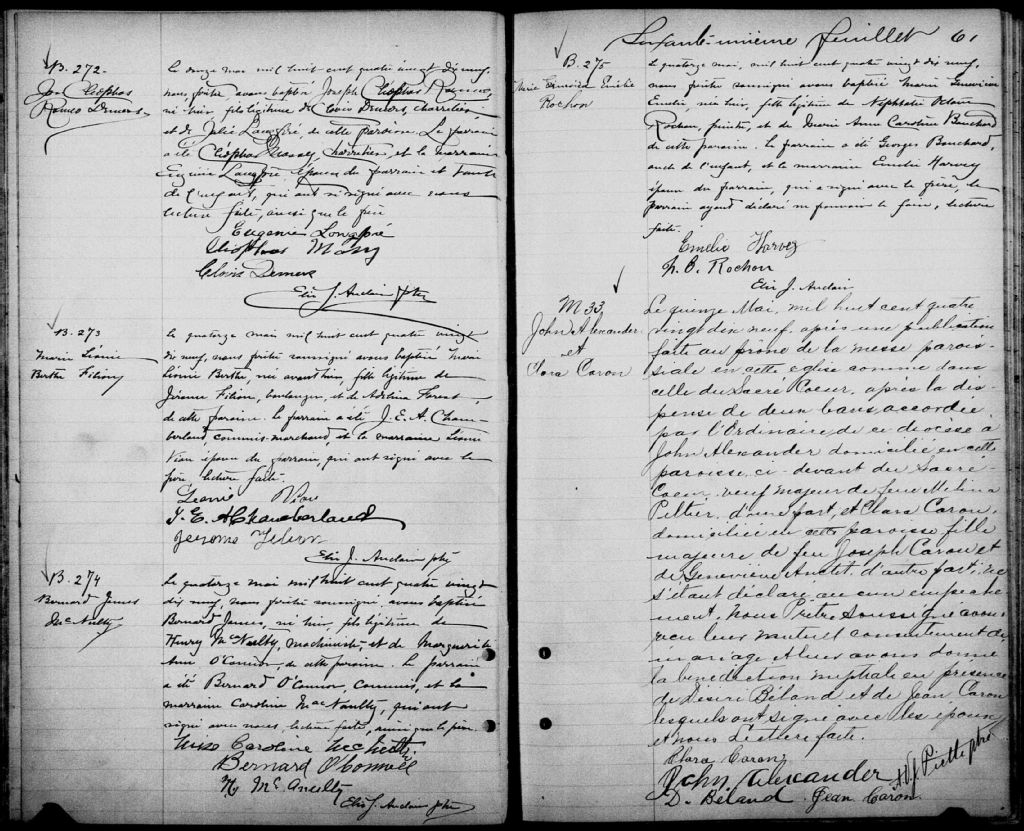 B. 272.
Jos. Cléophas
Romeo Demers.
Le douze mai mil huit cent quatre vingt dix neuf,
nous prêtre avons baptisé Joseph Cléophas
né hier, fils légitime de Clovis Demers, charretier,
et de Julie Longpré, de cette paroisse. Le parrain
a été Cléophas Massy, charretier, et la marraine
Eugénie Longpré épouse du parrain et tante
de l'enfant, qui ont signé avec nous
lecture faite, ainsi que le père
Eugenie Longpré
Cléophas Massy
Clovis Demers
Elie J. Auclair ptre
B. 273
Marie Léonie
Berthe Filion
Le quatorze mai mil huit cent quatre vingt
dix neuf, nous prêtre soussigné avons baptisé Marie
Léonie Berthe, née avant hier, fille légitime de
Jérome Filion, boulanger, et de Adelina Parent,
de cette paroisse. Le parrain a été J. E. A. Cham-
berland, commis-marchand, et la marraine Léonie
Viau épouse du parrain, qui ont signé avec le
père, lecture faite.
Léonie Viau
J. E. A Chamberland
Jerome Filion
Elie J. Auclair ptre
B. 274
Bernard James
McNeilty
Le quatorze mai mil huit cent quatre vingt
dix neuf, nous prêtre soussigné, avons baptisé
Bernard James, né hier, fils légitime de
Henry McNeilty, machiniste, et de Marguerite
Ann O'Connor, de cette paroisse. Le parrain
a été Bernard O'Connor, commis, et la
marraine Caroline McNeilty, qui ont
signé avec nous, lecture faite, ainsi que le père.
Miss Caroline
Bernard O'Connell
H. McAneilty
Elie J. Auclair ptre
Soixante-unième feuillet 61
B. 275
Marie Genevieve Emélie
Rochon
Le quatorze mai, mil huit cent quatre vingt dix neuf,
nous prêtre soussigné avons baptisé Marie Genevieve
Emelie, née hier, fille légitime de Nephtalie Odom
Rochon, peintre, et de Marie Anne Caroline Bouchard
de cette paroisse. Le parrain a été Georges Bouchard,
oncle de l'enfant, et la marraine Emélie Harvey
épouse du parrain, qui a signé avec le père, le
parrain ayant déclaré ne pouvoir le faire, lecture
faite.
Emelie Harvey
N. O. Rochon
Elie J. Auclair
M 33
John Alexander
et
Clara Caron
Le quinze Mai, mil huit cent quatre
vingt dix neuf, après une publication
faite au prône de la messe parois-
siale en cette eglise comme dans
celle du Sacré Coeur, après la dis-
pense de deux bans accordée
par l'Ordinaire de ce diocèse à
John Alexander domicilié en cette
paroisse, ci-devant du Sacré-
Coeur, veuf majeur de feue Melina
Peltier, d'une part, et Clara Caron,
domiciliée en cette paroisse fille
majeure de feu Joseph Caron et
de Geneviève Anctet, d'autre part; ne
s'étant déclaré aucun empeche-
ment, Nous Prêtre Soussigné avons
reçu leur mutuel consentement de
mariage et leur avons donné
la bénédiction nuptiale en présence
de Désiré Béland et de Jean Caron
lesquels ont signé avec les époux
et nous. Lecture faite.
Clara Caron
John Alexander
D. Béland Jean Caron